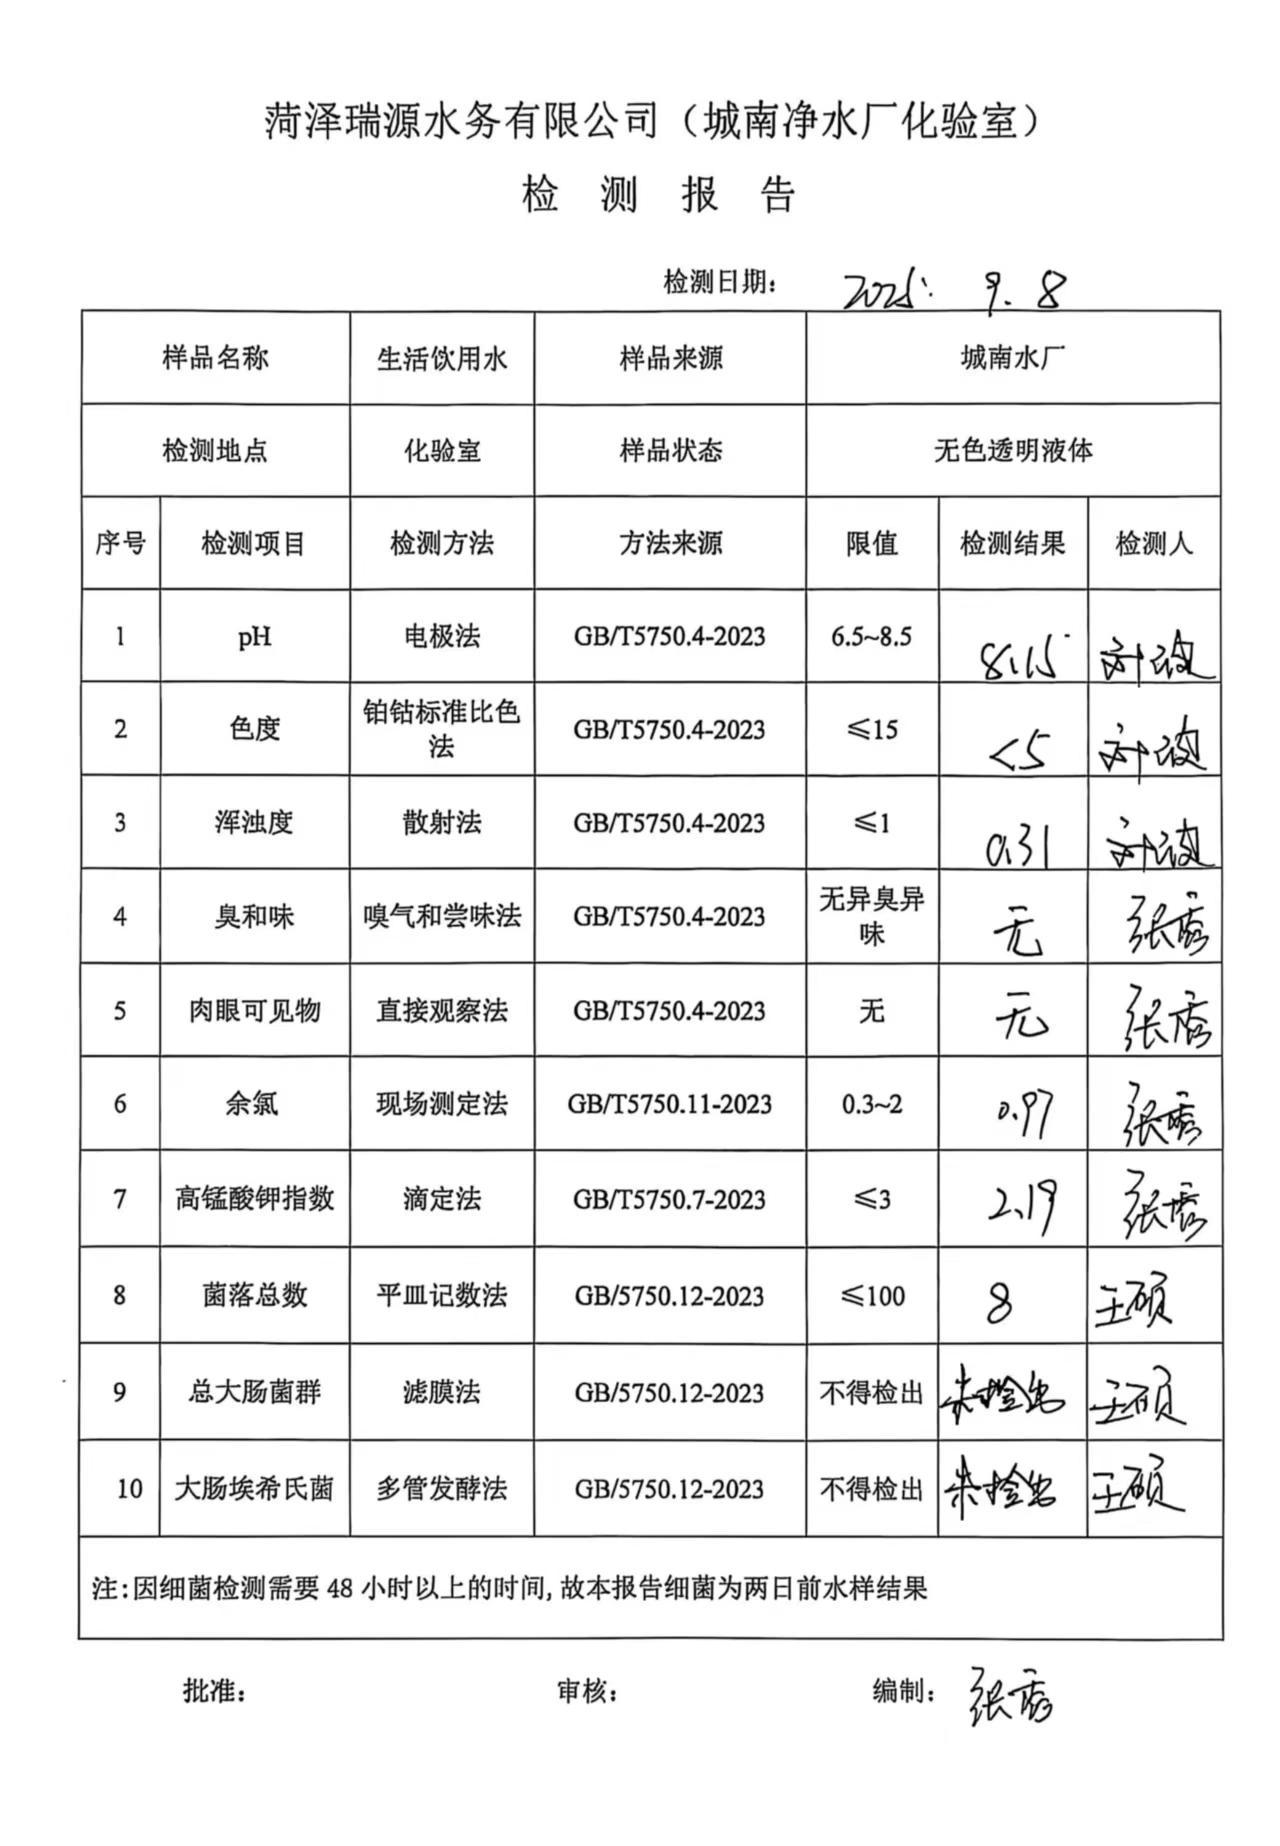 菏泽瑞源水务有限公司（城南净水厂化验室）
检 测 报 告
检测日期： 2025. 9. 8
样品名称 生活饮用水 样品来源 城南水厂
检测地点 化验室 样品状态 无色透明液体
序号 检测项目 检测方法 方法来源 限值 检测结果 检测人
1 pH 电极法 GB/T5750.4-2023 6.5~8.5 8.15 刘波
2 色度 铂钴标准比色法 GB/T5750.4-2023 ≤15 <5 刘波
3 浑浊度 散射法 GB/T5750.4-2023 ≤1 0.31 刘波
4 臭和味 嗅气和尝味法 GB/T5750.4-2023 无异臭异味 无 张
5 肉眼可见物 直接观察法 GB/T5750.4-2023 无 无 张
6 余氯 现场测定法 GB/T5750.11-2023 0.3~2 0.97 张
7 高锰酸钾指数 滴定法 GB/T5750.7-2023 ≤3 2.19 张
8 菌落总数 平皿记数法 GB/5750.12-2023 ≤100 8 王硕
9 总大肠菌群 滤膜法 GB/5750.12-2023 不得检出 未检出 王硕
10 大肠埃希氏菌 多管发酵法 GB/5750.12-2023 不得检出 未检出 王硕
注:因细菌检测需要 48 小时以上的时间,故本报告细菌为两日前水样结果
批准： 审核： 编制： 张